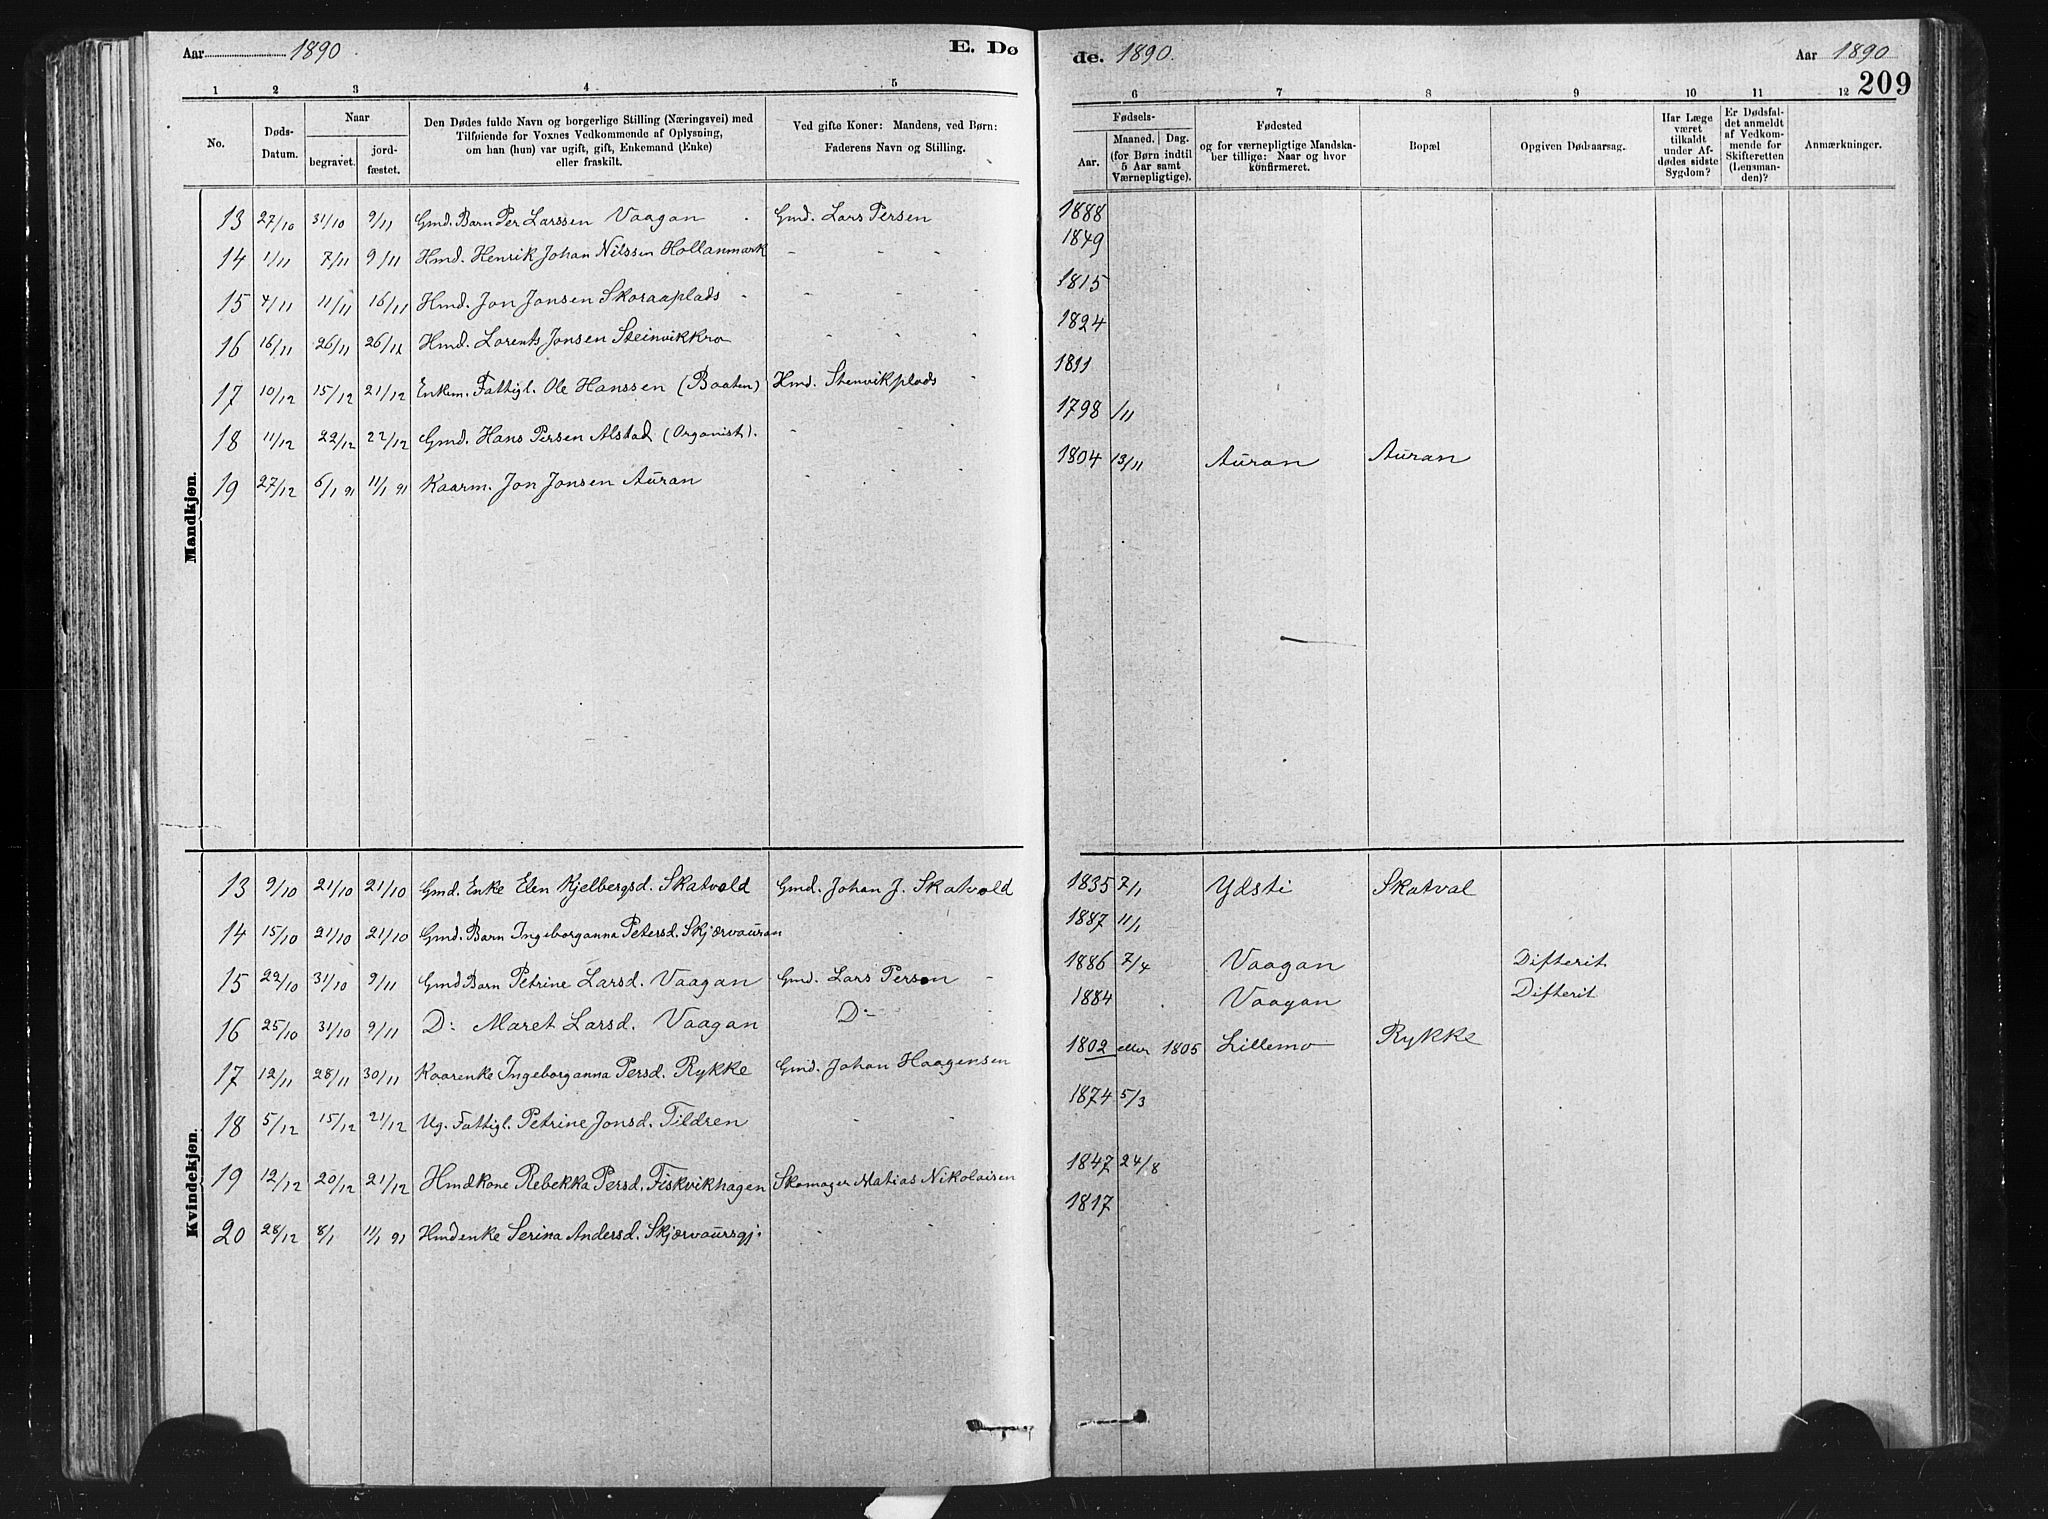 Aar 1890 E. Dø de. 1890. Aar 1890
209
1 2 3 4 5 6 7 8 9 10 11 12
No. Døds-Datum. Naar begravet. jord-fæstet. Den Dødes fulde Navn og borgerlige Stilling (Næringsvei) med Tilføiende for Voxnes Vedkommende af Oplysning, om han (hun) var ugift, gift, Enkemand (Enke) eller fraskilt. Ved gifte Koner: Mandens, ved Børn: Faderens Navn og Stilling. Fødsels- Aar. Maaned. Dag. (for Børn indtil 5 Aar samt Værnepligtige). Fødested og for værnepligtige Mandskaber tillige: Naar og hvor konfirmeret. Bopæl Opgiven Dødsaarsag. Har Læge været tilkaldt under Afdødes sidste Sygdom? Er Dødsfaldet anmeldt af Vedkommende for Skifteretten (Lensmanden)? Anmærkninger.
Mandkjøn.
13 27/10 31/10 9/11 Gmd. Barn Per Larssen Vaagan - Gmd. Lars Persen 1888
14 1/11 7/11 9/11 Hmd. Henrik Johan Nilssen Hollanmark - - - 1849
15 4/11 11/11 16/11 Hmd. Jon Jonsen Skoraaplads - - - - 1815
16 16/11 26/11 26/11 Hmd. Lorents Jonsen Steinvikkro - - - 1824
17 10/12 15/12 21/12 Enkem. Fattigl. Ole Hanssen (Baaten) Hmd. Stenvikplads - 1811
18 11/12 22/12 22/12 Gmd. Hans Persen Alstad (Organist). - - - 1798 /11
19 27/12 6/1 91 11/1 91 Kaarm. Jon Jonsen Auran - - - 1804 13/11 Auran Auran
Kvindekjøn.
13 9/10 21/10 21/10 Gmd. Enke Elen Kjelbergsd. Skatvold Gmd. Johan J. Skatvold 1835 7/1 Ydsti Skatval
14 15/10 21/10 21/10 Gmd. Barn Ingeborganna Petersd. Skjærvauran - - 1887 11/1
15 22/10 31/10 9/11 Gmd Barn Petrine Larsd. Vaagan Gmd. Lars Persen - 1886 7/4 Vaagan Difterit
16 25/10 31/10 9/11 D: Maret Larsd. Vaagan D:- - 1884 Vaagan Difterit
17 12/11 28/11 30/11 Kaarenke Ingeborganna Persd. Rykke Gmd. Johan Haagensen 1802 eller 1805 Lillemo Rykke
18 5/12 15/12 21/12 Ug. Fattigl. Petrine Jonsd. Tildren - - - 1874 5/3
19 12/12 20/12 21/12 Hmdkone Rebekka Persd. Fiskvikhagen Skomager Matias Nikolaisen 1847 24/8
20 28/12 8/1 11/1 91 Hmdenke Serina Andersd. Skjærvaursgj. - - - 1817